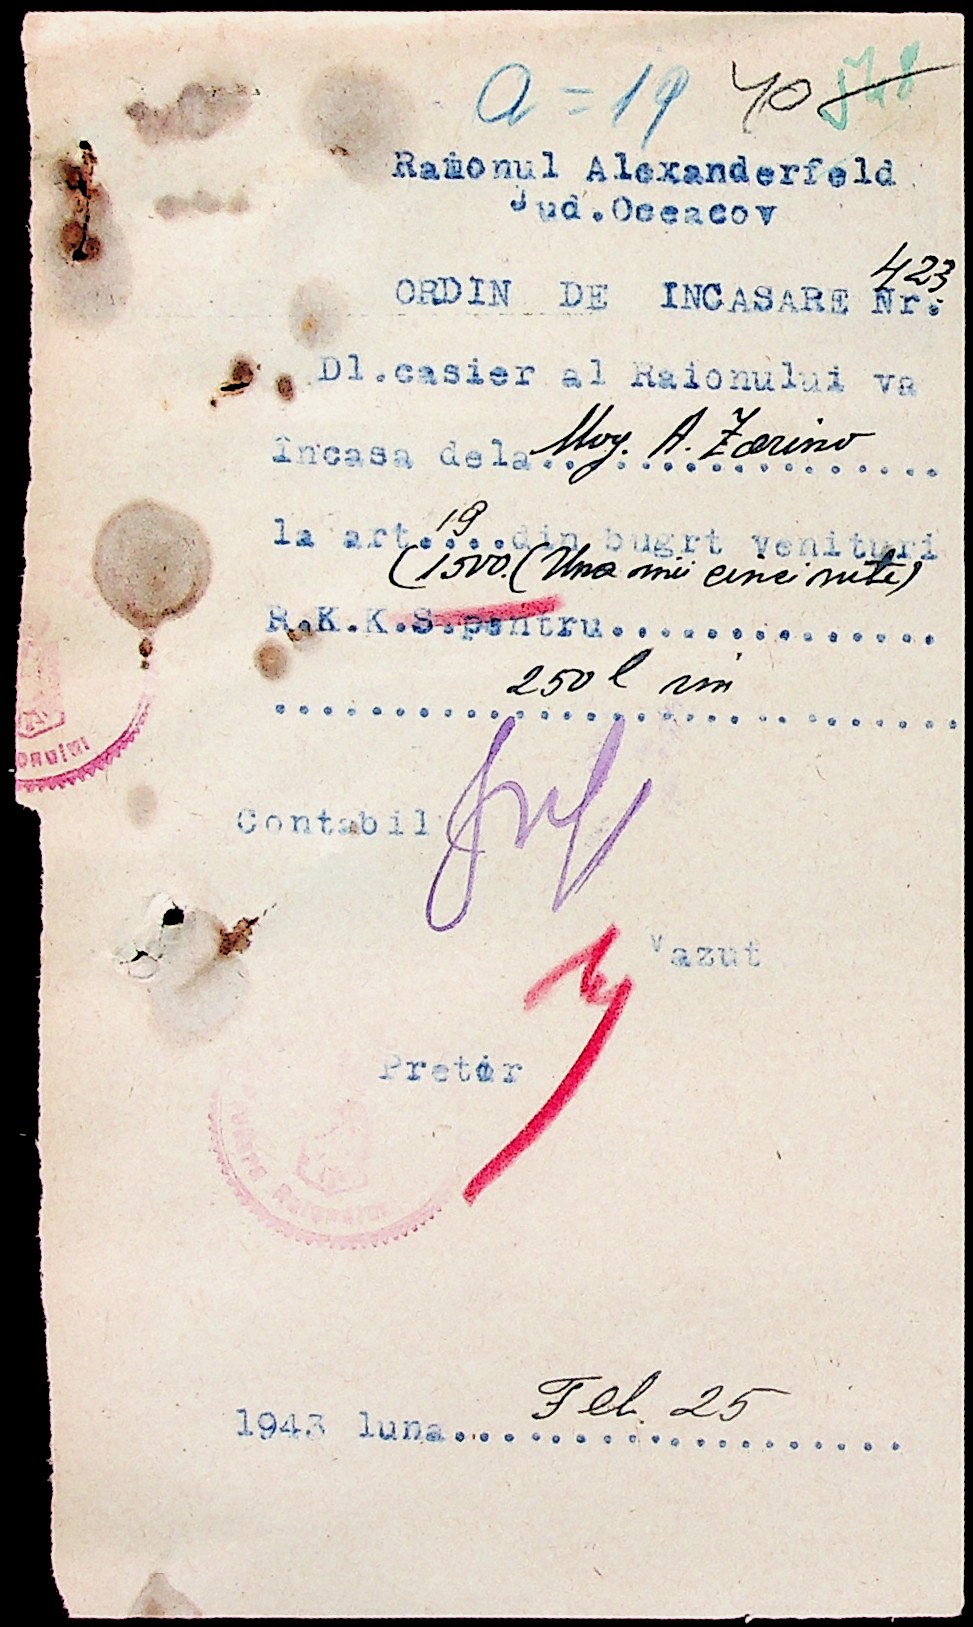 a = 19 40
Raionul Alexanderfeld
Jud.Oceacov
423
ORDIN DE INCASARE Nr.
Dl.casier al Raionului va
încasa dela Mog. A. Zarino
19
la art.....din bugrt venituri
(1500. (Una mii cinci sute)
R.K.K.S.pentru...............
250 l vin
Contabil
Vazut
Pretor
Raionului
1943 luna Feb. 25